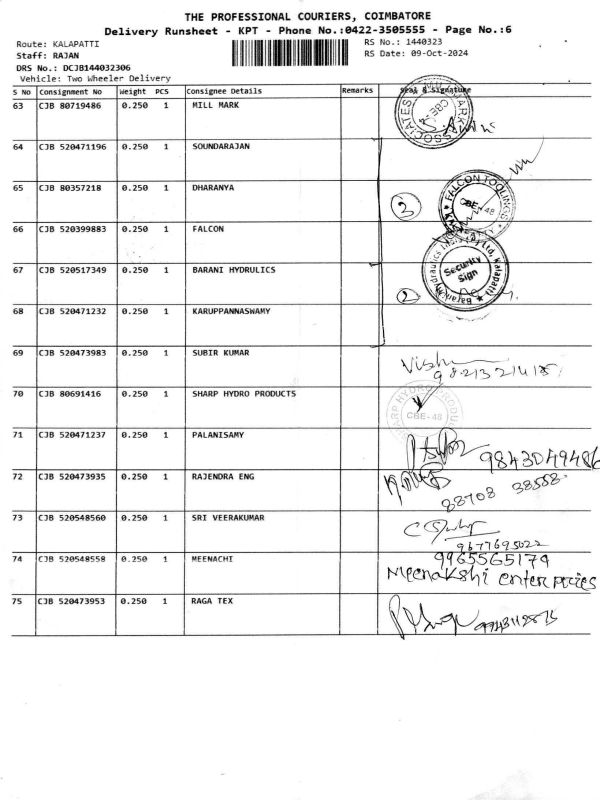 THE PROFESSIONAL COURIERS, COIMBATORE
Delivery Runsheet - KPT - Phone No.:0422-3505555 - Page No.:6
Route: KALAPATTI
RS No.: 1440323
Staff: RAJAN
RS Date: 09-Oct-2024
DRS No.: DCJB144032306
Vehicle: Two Wheeler Delivery
S No Consignment No Weight PCS Consignee Details Remarks Seal & Signature
63 CJB 80719486 0.250 1 MILL MARK
ASSOCIATES CBE
64 CJB 520471196 0.250 1 SOUNDARAJAN
65 CJB 80357218 0.250 1 DHARANYA
3
FALCON TOOLINGS CBE-48
66 CJB 520399883 0.250 1 FALCON
67 CJB 520517349 0.250 1 BARANI HYDRULICS
2
Barani Hydraulics (P) Ltd, Kalapatti Security Sign
68 CJB 520471232 0.250 1 KARUPPANNASWAMY
69 CJB 520473983 0.250 1 SUBIR KUMAR
70 CJB 80691416 0.250 1 SHARP HYDRO PRODUCTS
SHARP HYDRO PRODUCTS CBE-48
71 CJB 520471237 0.250 1 PALANISAMY
9843049486
72 CJB 520473935 0.250 1 RAJENDRA ENG
88708 38558
73 CJB 520548560 0.250 1 SRI VEERAKUMAR
9677695022
74 CJB 520548558 0.250 1 MEENACHI
9965565174
Meenakshi enterprices
75 CJB 520473953 0.250 1 RAGA TEX